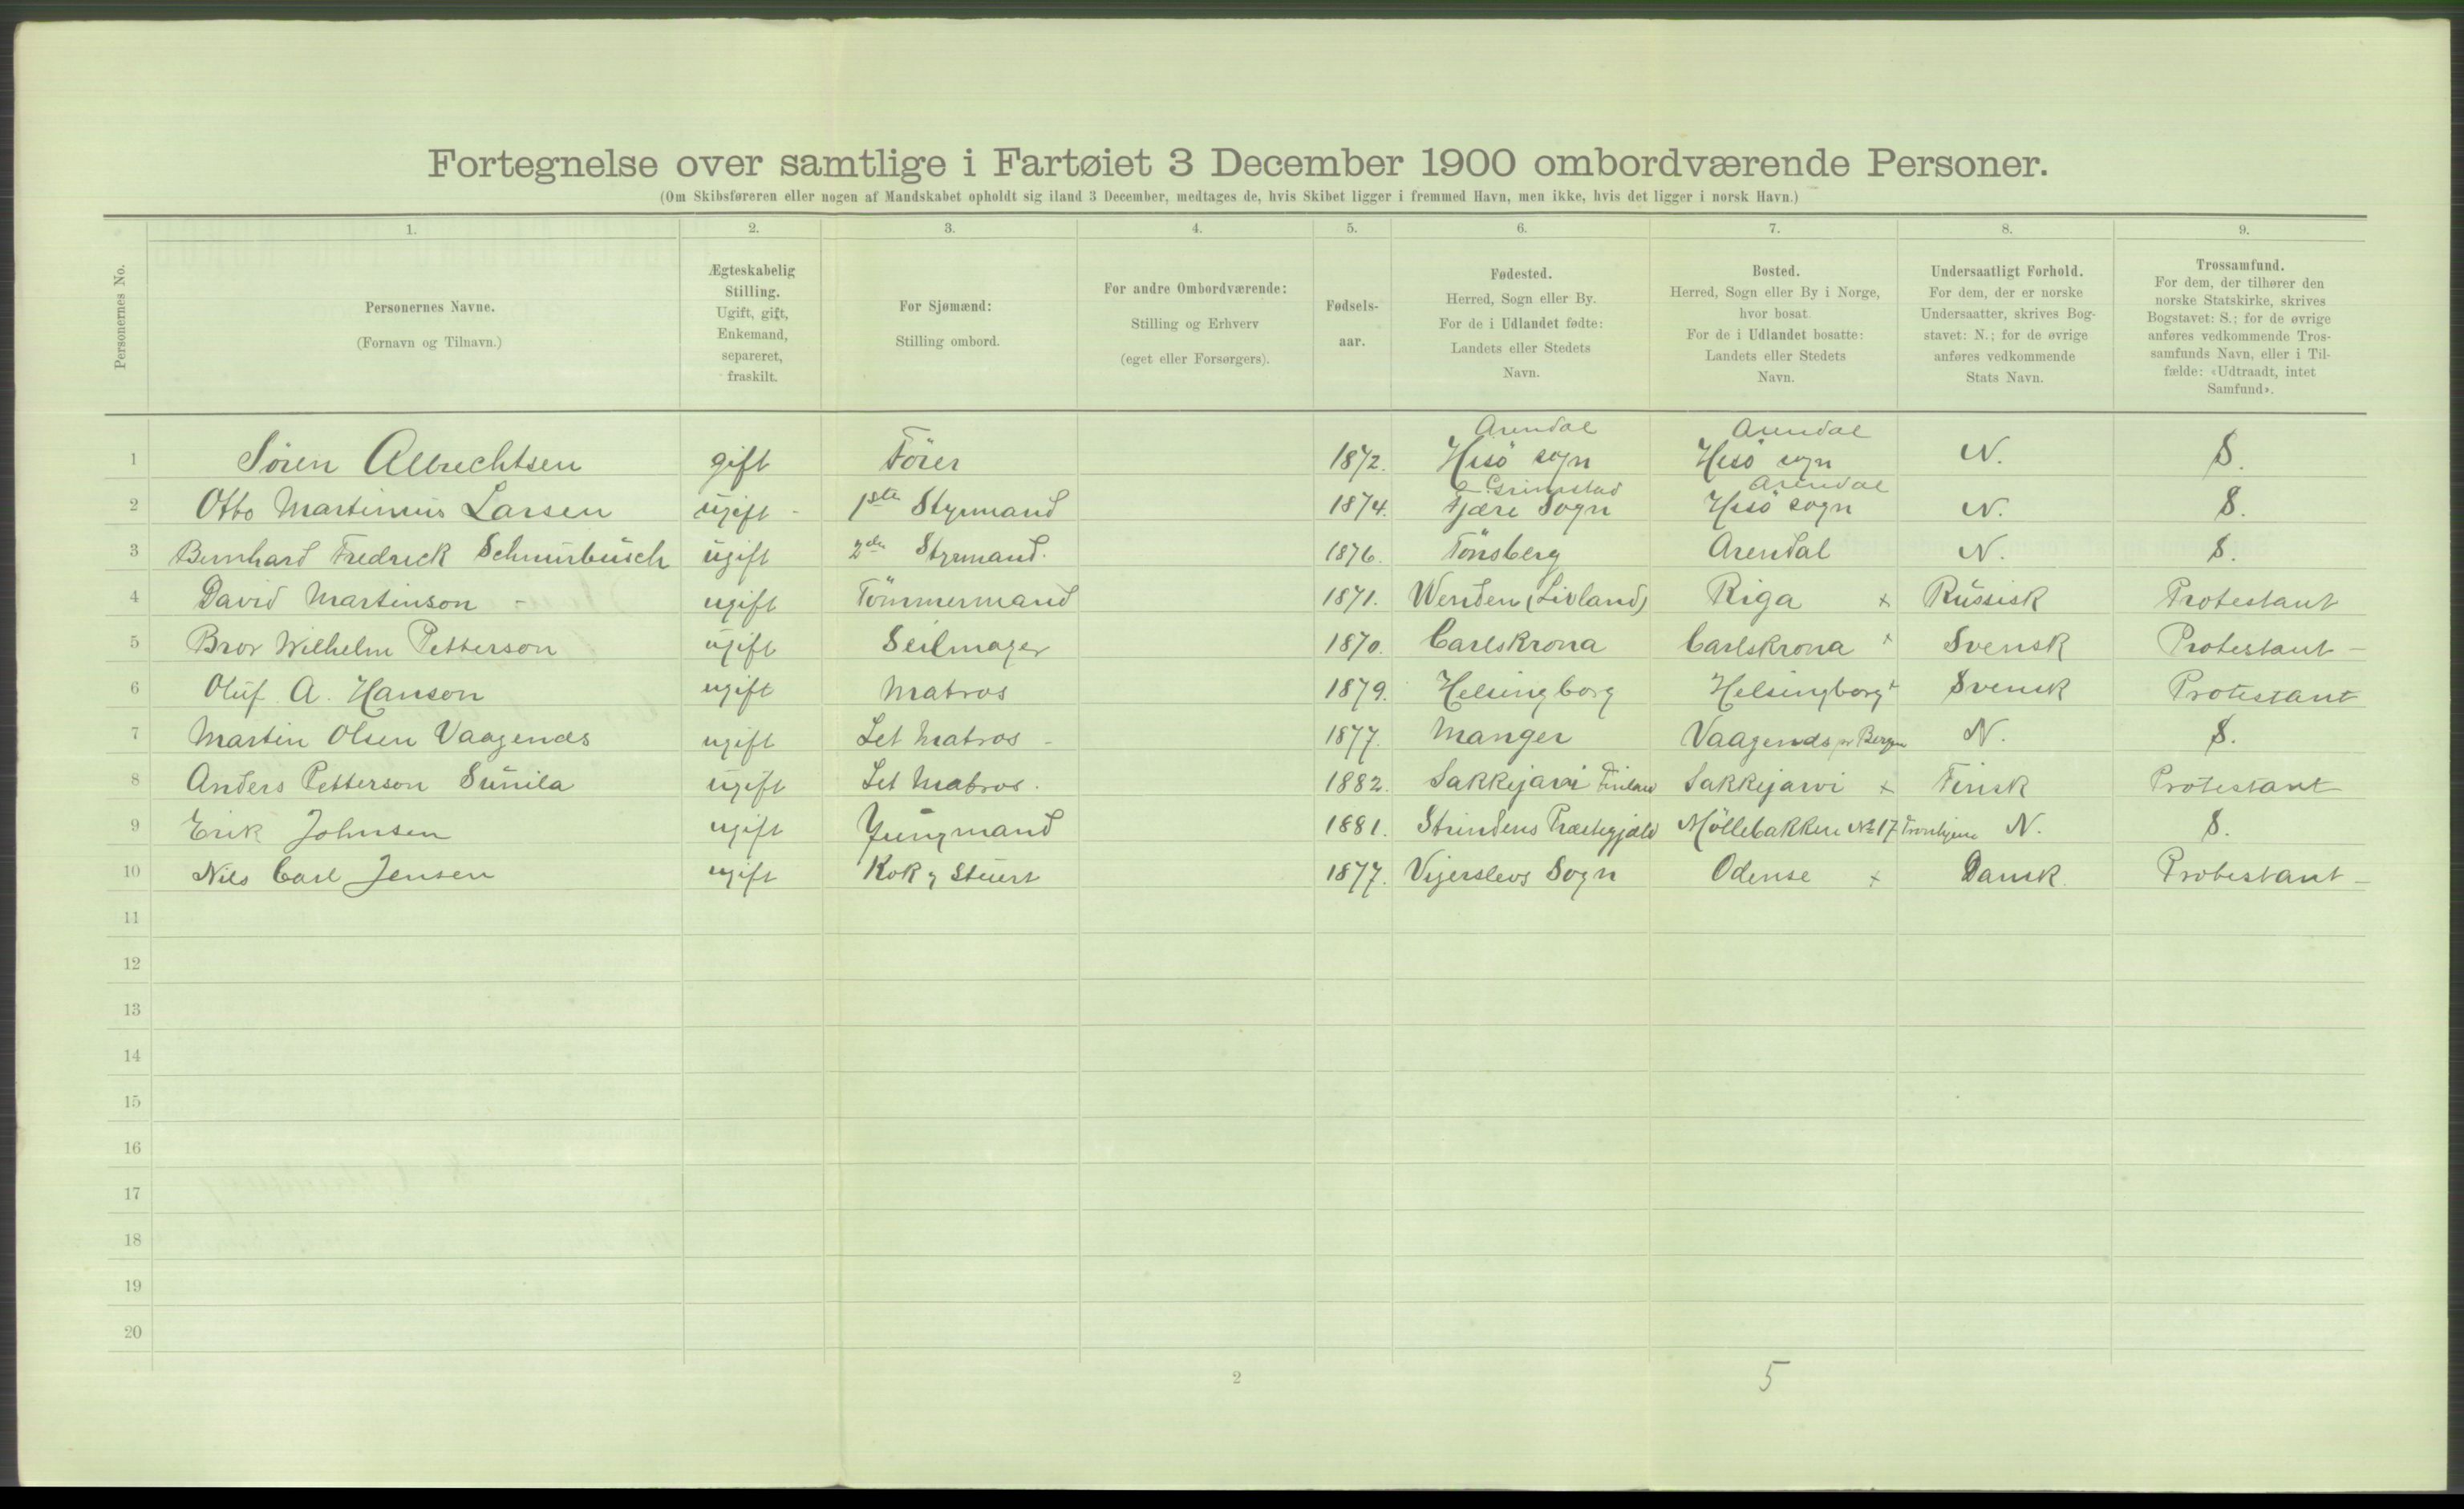 Fortegnelse over samtlige i Fartøiet 3 December 1900 ombordværende Personer.
(Om Skibsføreren eller nogen af Mandskabet opholdt sig iland 3 December, medtages de, hvis Skibet ligger i fremmed Havn, men ikke, hvis det ligger i norsk Havn.)
Personernes No.
1. 2. 3. 4. 5. 6. 7. 8. 9.
Personernes Navne.
(Fornavn og Tilnavn.)
Ægteskabelig
Stilling.
Ugift, gift,
Enkemand,
separeret,
fraskilt.
For Sjømænd:
Stilling ombord.
For andre Ombordværende:
Stilling og Erhverv
(eget eller Forsørgers).
Fødsels-
aar.
Fødested.
Herred, Sogn eller By.
For de i Udlandet fødte:
Landets eller Stedets
Navn.
Bosted.
Herred, Sogn eller By i Norge,
hvor bosat.
For de i Udlandet bosatte:
Landets eller Stedets
Navn.
Undersaatligt Forhold.
For dem, der er norske
Undersaatter, skrives Bog-
stavet: N.; for de øvrige
anføres vedkommende
Stats Navn.
Trossamfund.
For dem, der tilhører den
norske Statskirke, skrives
Bogstavet: S.; for de øvrige
anføres vedkommende Tros-
samfunds Navn, eller i Til-
fælde: «Udtraadt, intet
Samfund».
Arendal Arendal
1 Sören Albrechtsen gift Förer 1872. Hisö sogn Hisö sogn N. S.
Grimstad Arendal
2 Otto Martinius Larsen ugift - 1ste Styrmand 1874. Fjære Sogn Hisö sogn N. S.
3 Bernhard Fredrick Schnurbusch ugift 2den Styrmand. 1876. Tönsberg Arendal N. S.
4 David Martinson - ugift Tömmermand 1871. Wenden (Livland) Riga x Russisk Protestant
5 Bror Wilhelm Petterson ugift Seilmager 1870. Carlskrona Carlskrona x Svensk Protestant -
6 Oluf A. Hanson ugift Matros 1879. Helsingborg Helsingborg x Svensk Protestant
7 Martin Olsen Vaagenæs ugift Let Matros - 1877. Manger Vaagenæs pr Bergen N. S.
8 Anders Petterson Sunila ugift Let Matros. 1882. Sakkijarvi Finland Sakkijarvi x Finsk Protestant
9 Erik Johnsen ugift Jungmand 1881. Strindens Præstegjæld Möllebakken No 17 Tronhjem N. S.
10 Nils Carl Jensen ugift Kok & Stuert 1877. Vigerslevs Sogn Odense x Dansk. Protestant -
11
12
13
14
15
16
17
18
19
20
2 5